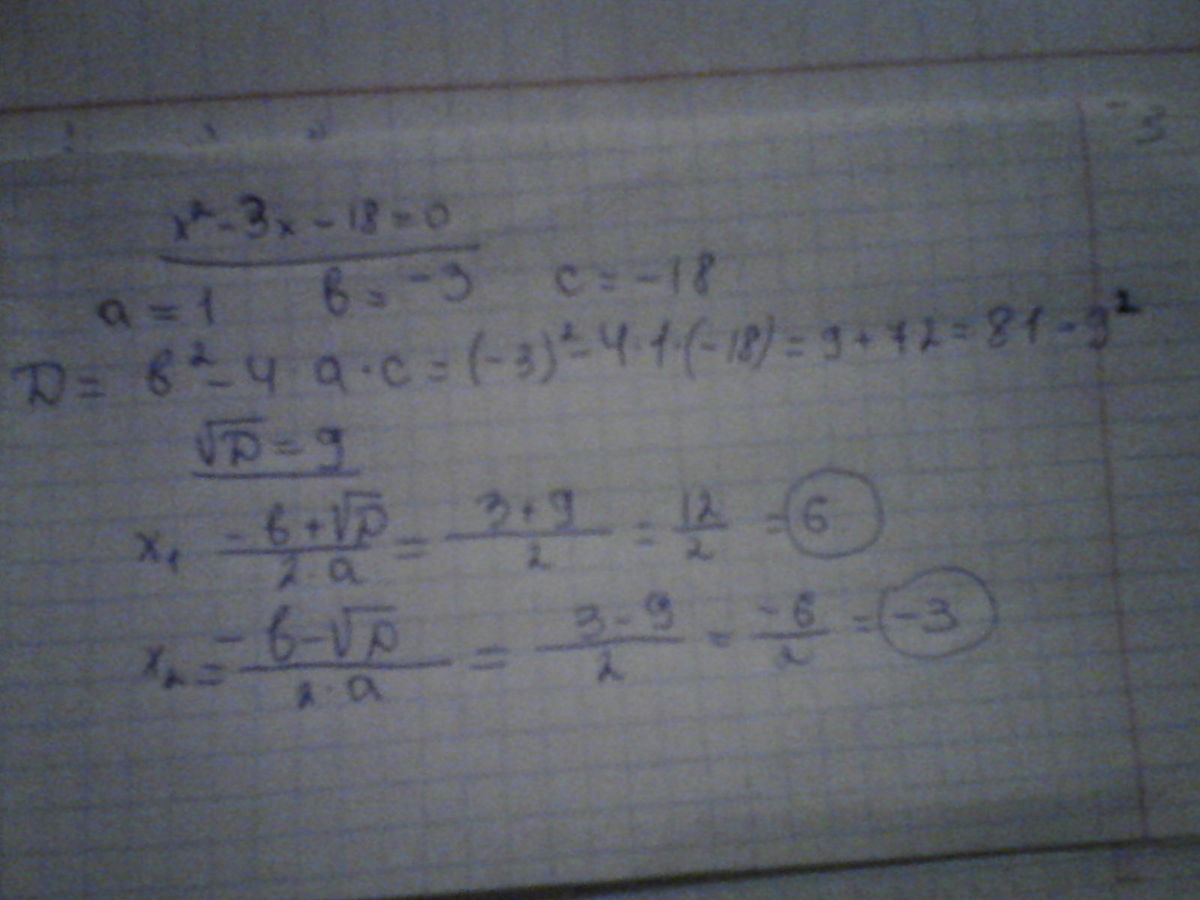 x² - 3x - 18 = 0
a = 1 b = -3 c = -18
D = b² - 4 · a · c = (-3)² - 4 · 1 · (-18) = 9 + 72 = 81 = 9²
√D = 9
x₁ (-b + √D)/(2 · a) = (3 + 9)/2 = 12/2 = 6
x₂ = (-b - √D)/(2 · a) = (3 - 9)/2 = -6/2 = -3